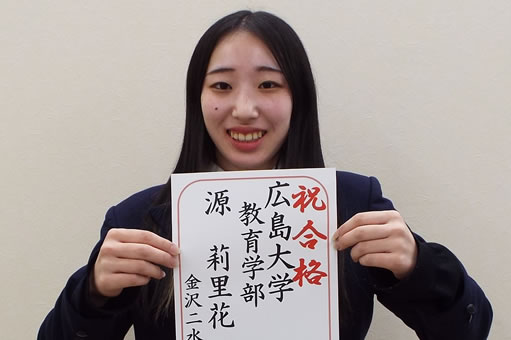 祝合格
広島大学
教育学部
源 莉里花
金沢二水